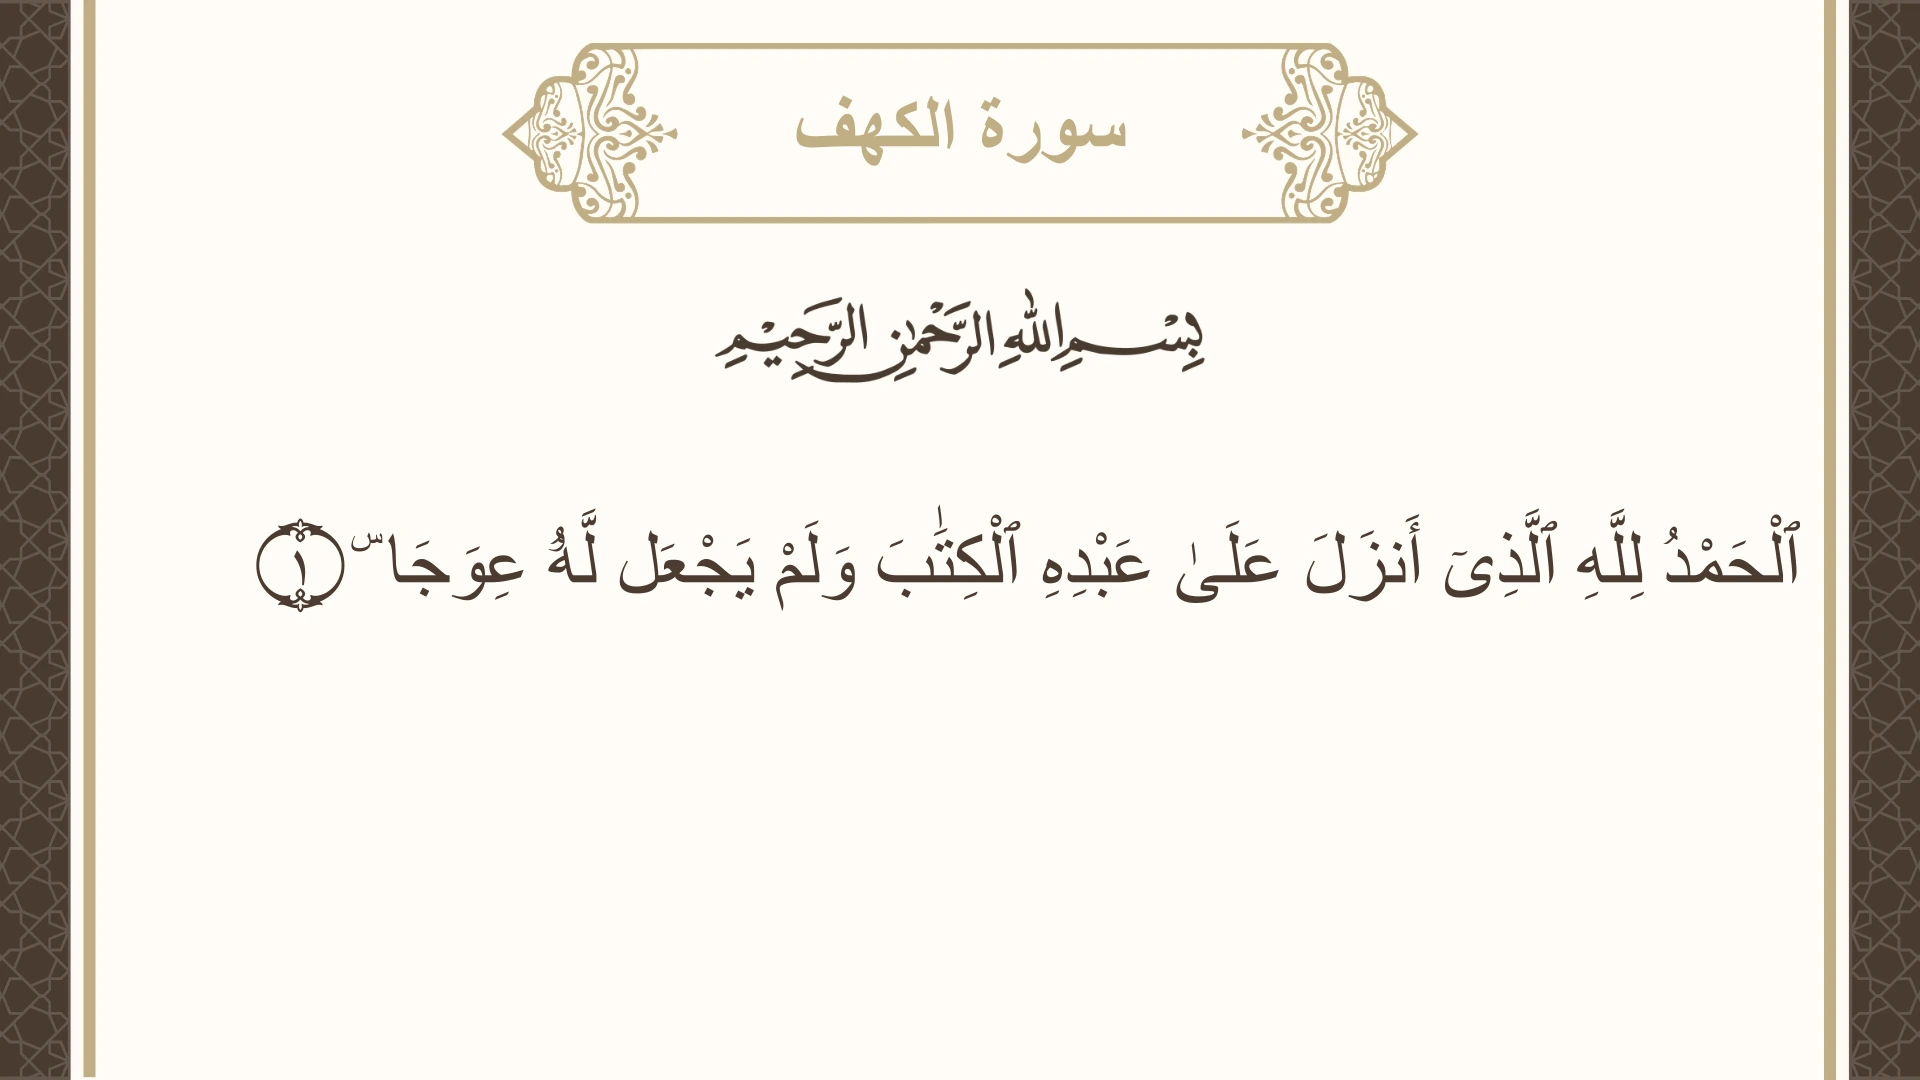 سورة الكهف
بِسْمِ اللهِ الرَّحْمٰنِ الرَّحِيْمِ
ٱلْحَمْدُ لِلَّهِ ٱلَّذِىٓ أَنزَلَ عَلَىٰ عَبْدِهِ ٱلْكِتَـٰبَ وَلَمْ يَجْعَل لَّهُۥ عِوَجَا ۜ ١